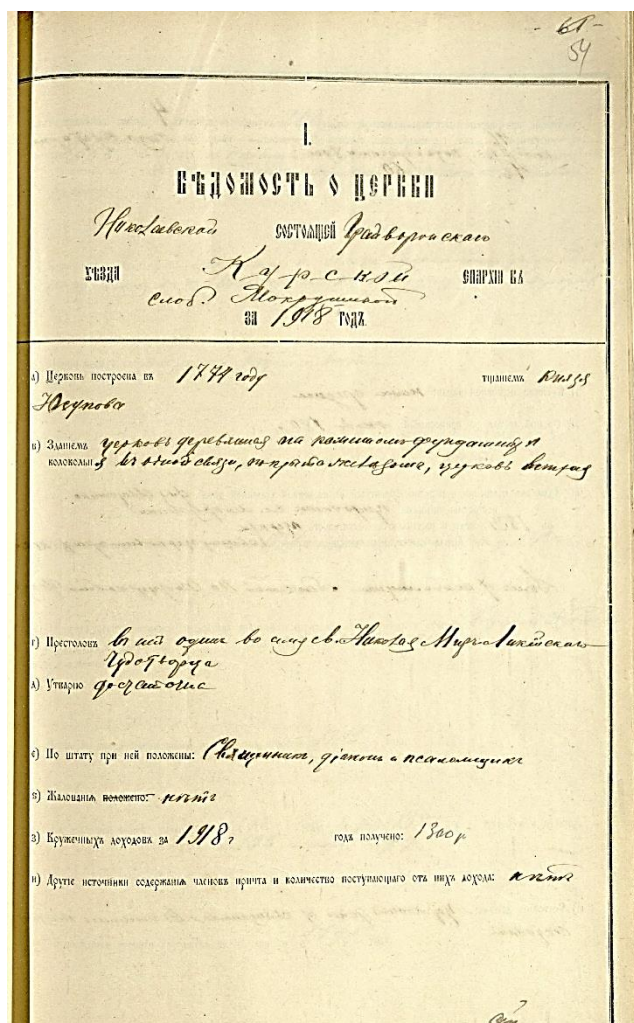 54
I.
ВѢДОМОСТЬ О ЦЕРКВИ
Николаевской СОСТОЯЩЕЙ Грайворонскаго
УѢЗДА Курской ЕПАРХІИ ВЪ
слоб. Мокрушиной
ЗА 1918 ГОДЪ.
а) Церковь построена въ 1774 году тщаніемъ Князя
Юсупова
в) Зданіемъ церковь деревянная на каменномъ фундаментѣ
колокольня въ одной связи, покрыта желѣзомъ, церковь ветхая
г) Престоловъ въ ней одинъ во имя св. Николая Мирликійскаго
Чудотворца
д) Утварію достаточна
е) По штату при ней положены: Священникъ, діаконъ и псаломщикъ
ѕ) Жалованья положено: нѣтъ
з) Кружечныхъ доходовъ за 1918 г годъ получено: 1300 р
и) Другіе источники содержанія членовъ причта и количество поступающаго отъ нихъ дохода: нѣтъ